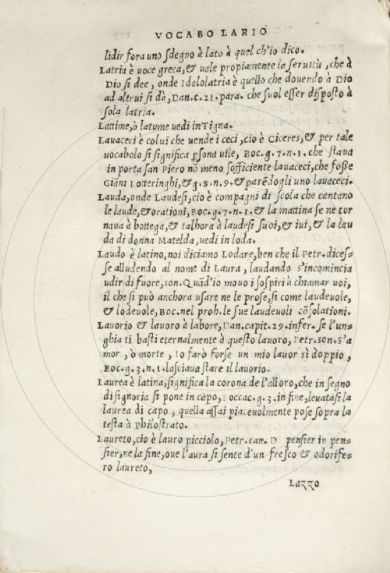 VOCABO LARIO
lidir fora uno sdegno è lato à quel ch'io dico.
Latria è uoce greca, & uale propiamente lo seruitù, che à
Dio si dee, onde Idolotria è quello che douendo à Dio
ad altrui si dà, Dan. c. 21. para. che suol esser disposto à
sola latria.
Lattime, ò latume uedi in Tigna.
Lauaceci è colui che uende i ceci, cio è Ciceres, & per tale
uocabolo si significa psona uile, Boc. g. 7. n. 1. che staua
in porta san Piero nō meno sofficiente lauaceci, che fosse
Giāni Lotteringhi, & g. 8. n. 9. & parēdogli uno lauaceci.
Lauda, onde Laudesi, cio è compagni di scola che cantano
le laude, & orationi, Boc. g. 7. n. 1. & la mattina se ne tor
naua à bottega, & talhora à laudesi suoi, & iui, & la lau
da di donna Matelda, uedi in Lodare.
Laudo è latino, noi diciamo Lodare, ben che il Petr. dices=
se alludendo al nome di Laura, laudando s'incomincia
udir di fuore, son. Quād'io mouo i sospiri à chiamar uoi,
il che si può anchora usare ne le prose, si come laudeuole,
& lodeuole, Boc. nel proh. le sue laudeuoli cōsolationi.
Lauorio & lauoro à labore, Dan. capit. 29. infer. se l'un=
ghia ti basti eternalmente à questo lauoro, Petr. son. S'a
mor, ò morte, Io farò forse un mio lauor sì doppio,
Boc. g. 3. n. 1. lasciaua stare il lauorio.
Laurea è latina, significa la corona de l'alloro, che in segno
di signoria si pone in capo, occac. g. 3. in fine, leuatasi la
laurea di capo, quella assai piaceuolmente pose sopra la
testa à Philostrato.
Laureto, cio è lauro picciolo, Petr. can. D pensier in pen=
sier, ne la fine, oue l'aura si sente d'un fresco & odorife=
ro laureto,
Lazzo